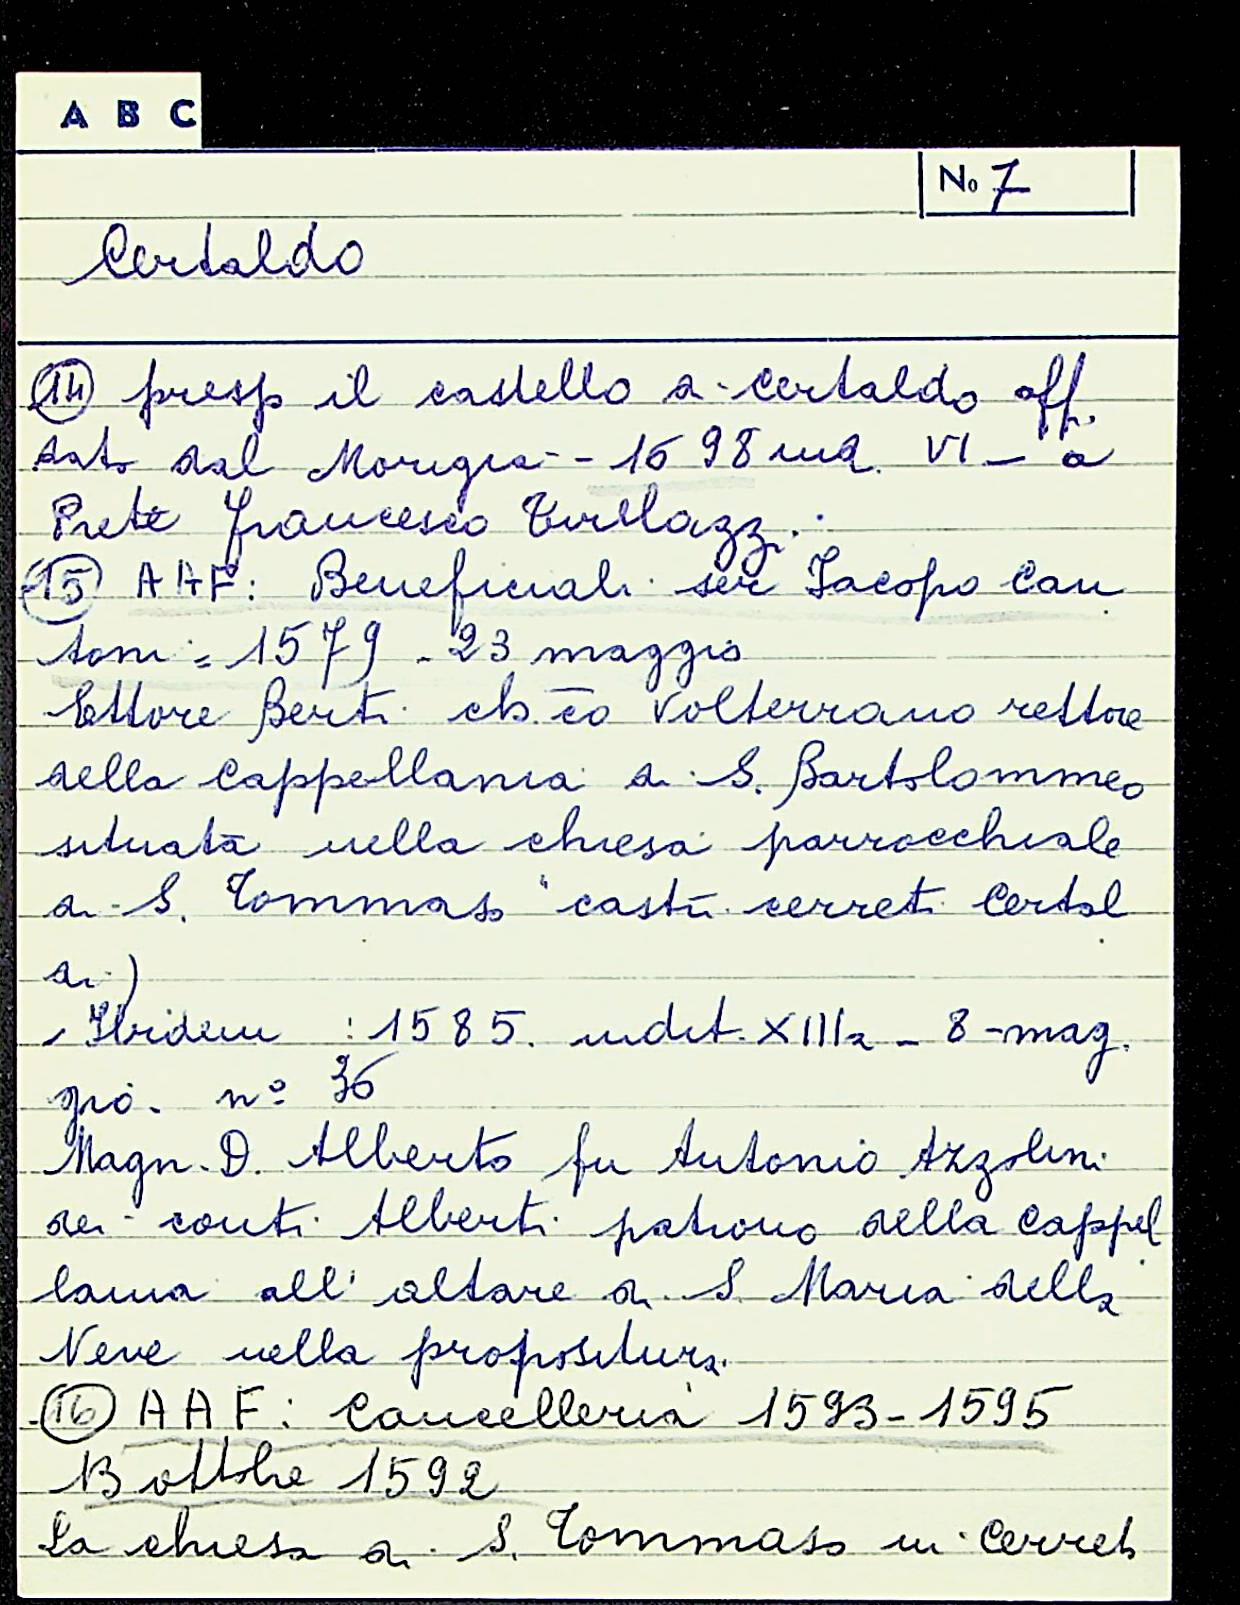 A B C
No 7
Certaldo
14) presso il castello di Certaldo off.
dato dal Morigia - 1598 ind. VI - a
Prete Francesco
15) AAF: Beneficiali ser Jacopo Can
toni = 1579 - 23 maggio
Ettore Berti ch. co Volterrano rettore
della cappellania di S. Bartolommeo
situata nella chiesa parrocchiale
di S. Tommaso "castri cerreti Certal
di)
Ibidem : 1585. indit. XIIIa - 8 mag.
gio. nº 36
Magn. D. Alberto fu Antonio Azzolini
dei conti Alberti patrono della cappel
lania all' altare di S. Maria della
Neve nella propositura.
16) AAF: Cancelleria 1593-1595
13 ottobre 1592
La chiesa di S. Tommaso in Cerreto